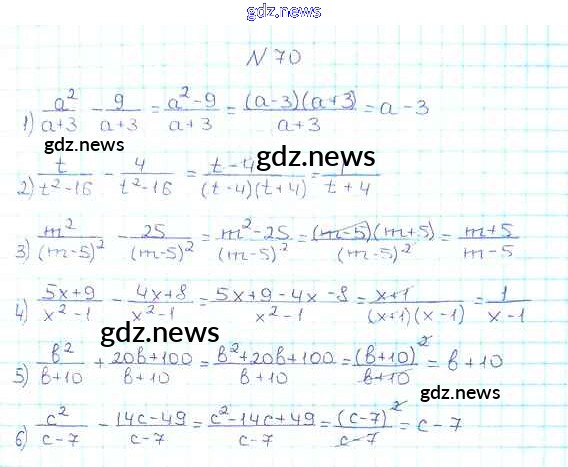 gdz.new
gdz.new
N 70
1) a²/(a+3) - 9/(a+3) = (a²-9)/(a+3) = (a-3)(a+3)/(a+3) = a-3
gdz.new
gdz.new
2) t/(t²-16) - 4/(t²-16) = (t-4)/((t-4)(t+4)) = 1/(t+4)
3) m²/(m-5)² - 25/(m-5)² = (m²-25)/(m-5)² = (m-5)(m+5)/(m-5)² = (m+5)/(m-5)
4) (5x+9)/(x²-1) - (4x+8)/(x²-1) = (5x+9-4x-8)/(x²-1) = (x+1)/((x+1)(x-1)) = 1/(x-1)
gdz.new
5) b²/(b+10) + (20b+100)/(b+10) = (b²+20b+100)/(b+10) = (b+10)²/(b+10) = b+10
gdz.new
6) c²/(c-7) - (14c-49)/(c-7) = (c²-14c+49)/(c-7) = (c-7)²/(c-7) = c-7
gdz.new